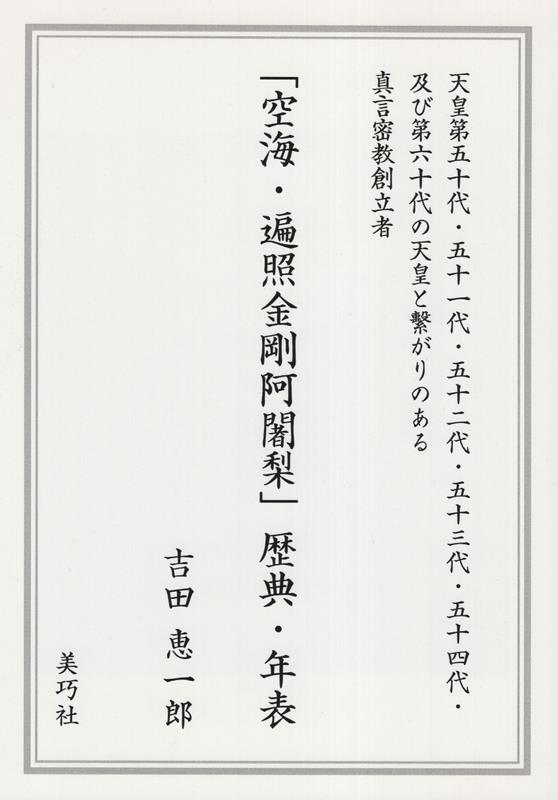 天皇第五十代・五十一代・五十二代・五十三代・五十四代・
及び第六十代の天皇と繫がりのある
真言密教創立者
「空海・遍照金剛阿闍梨」歴典・年表
吉田 恵一郎
美巧社